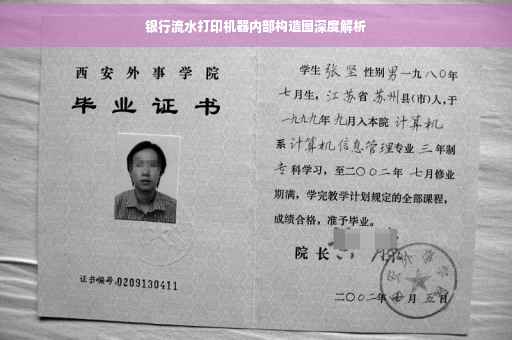 银行流水打印机器内部构造图深度解析
西安外事学院
毕业证书
证书编号:0209130411
学生 张坚 性别 男 一九八〇年
七月生，江苏省苏州县(市)人,于
一九九九年九月入本院 计算机
系 计算机信息管理专业 三 年制
专科学习，至二〇〇二年 七月修业
期满，学完教学计划规定的全部课程，
成绩合格，准予毕业。
院长
二〇〇二年 月五日